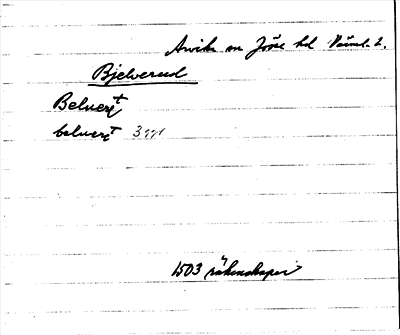 Arvika sn Jösse hd Värml. L.
Bjelverud
Belueꝛt
beluert 3 ggr
1503 räkenskaper